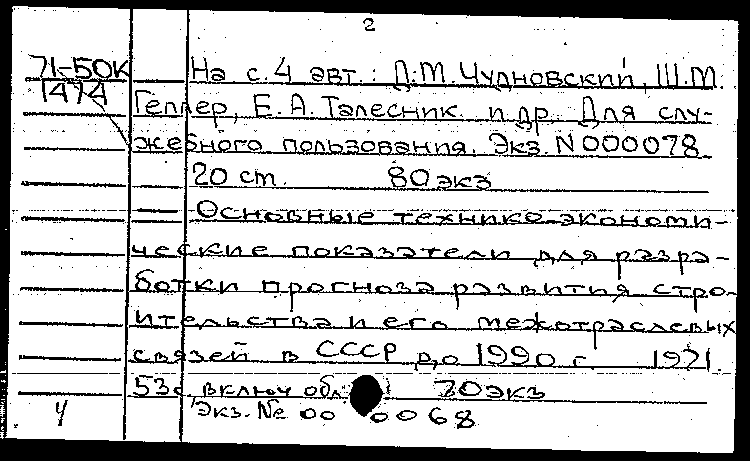 2
71-50К На с. 4 авт.: Д.М. Чудновский, Ш.М.
1474 Геллер, Е.А. Талесник и др. Для слу-
жебного пользования. Экз. N 000078
20 ст. 80 экз
Основные технико-экономи-
ческие показатели для разра-
ботки прогноза развития стро-
ительства и его межотраслевых
связей в СССР до 1990 г. 1971.
53с. включ обл. 70 экз
Экз. № 00 0068